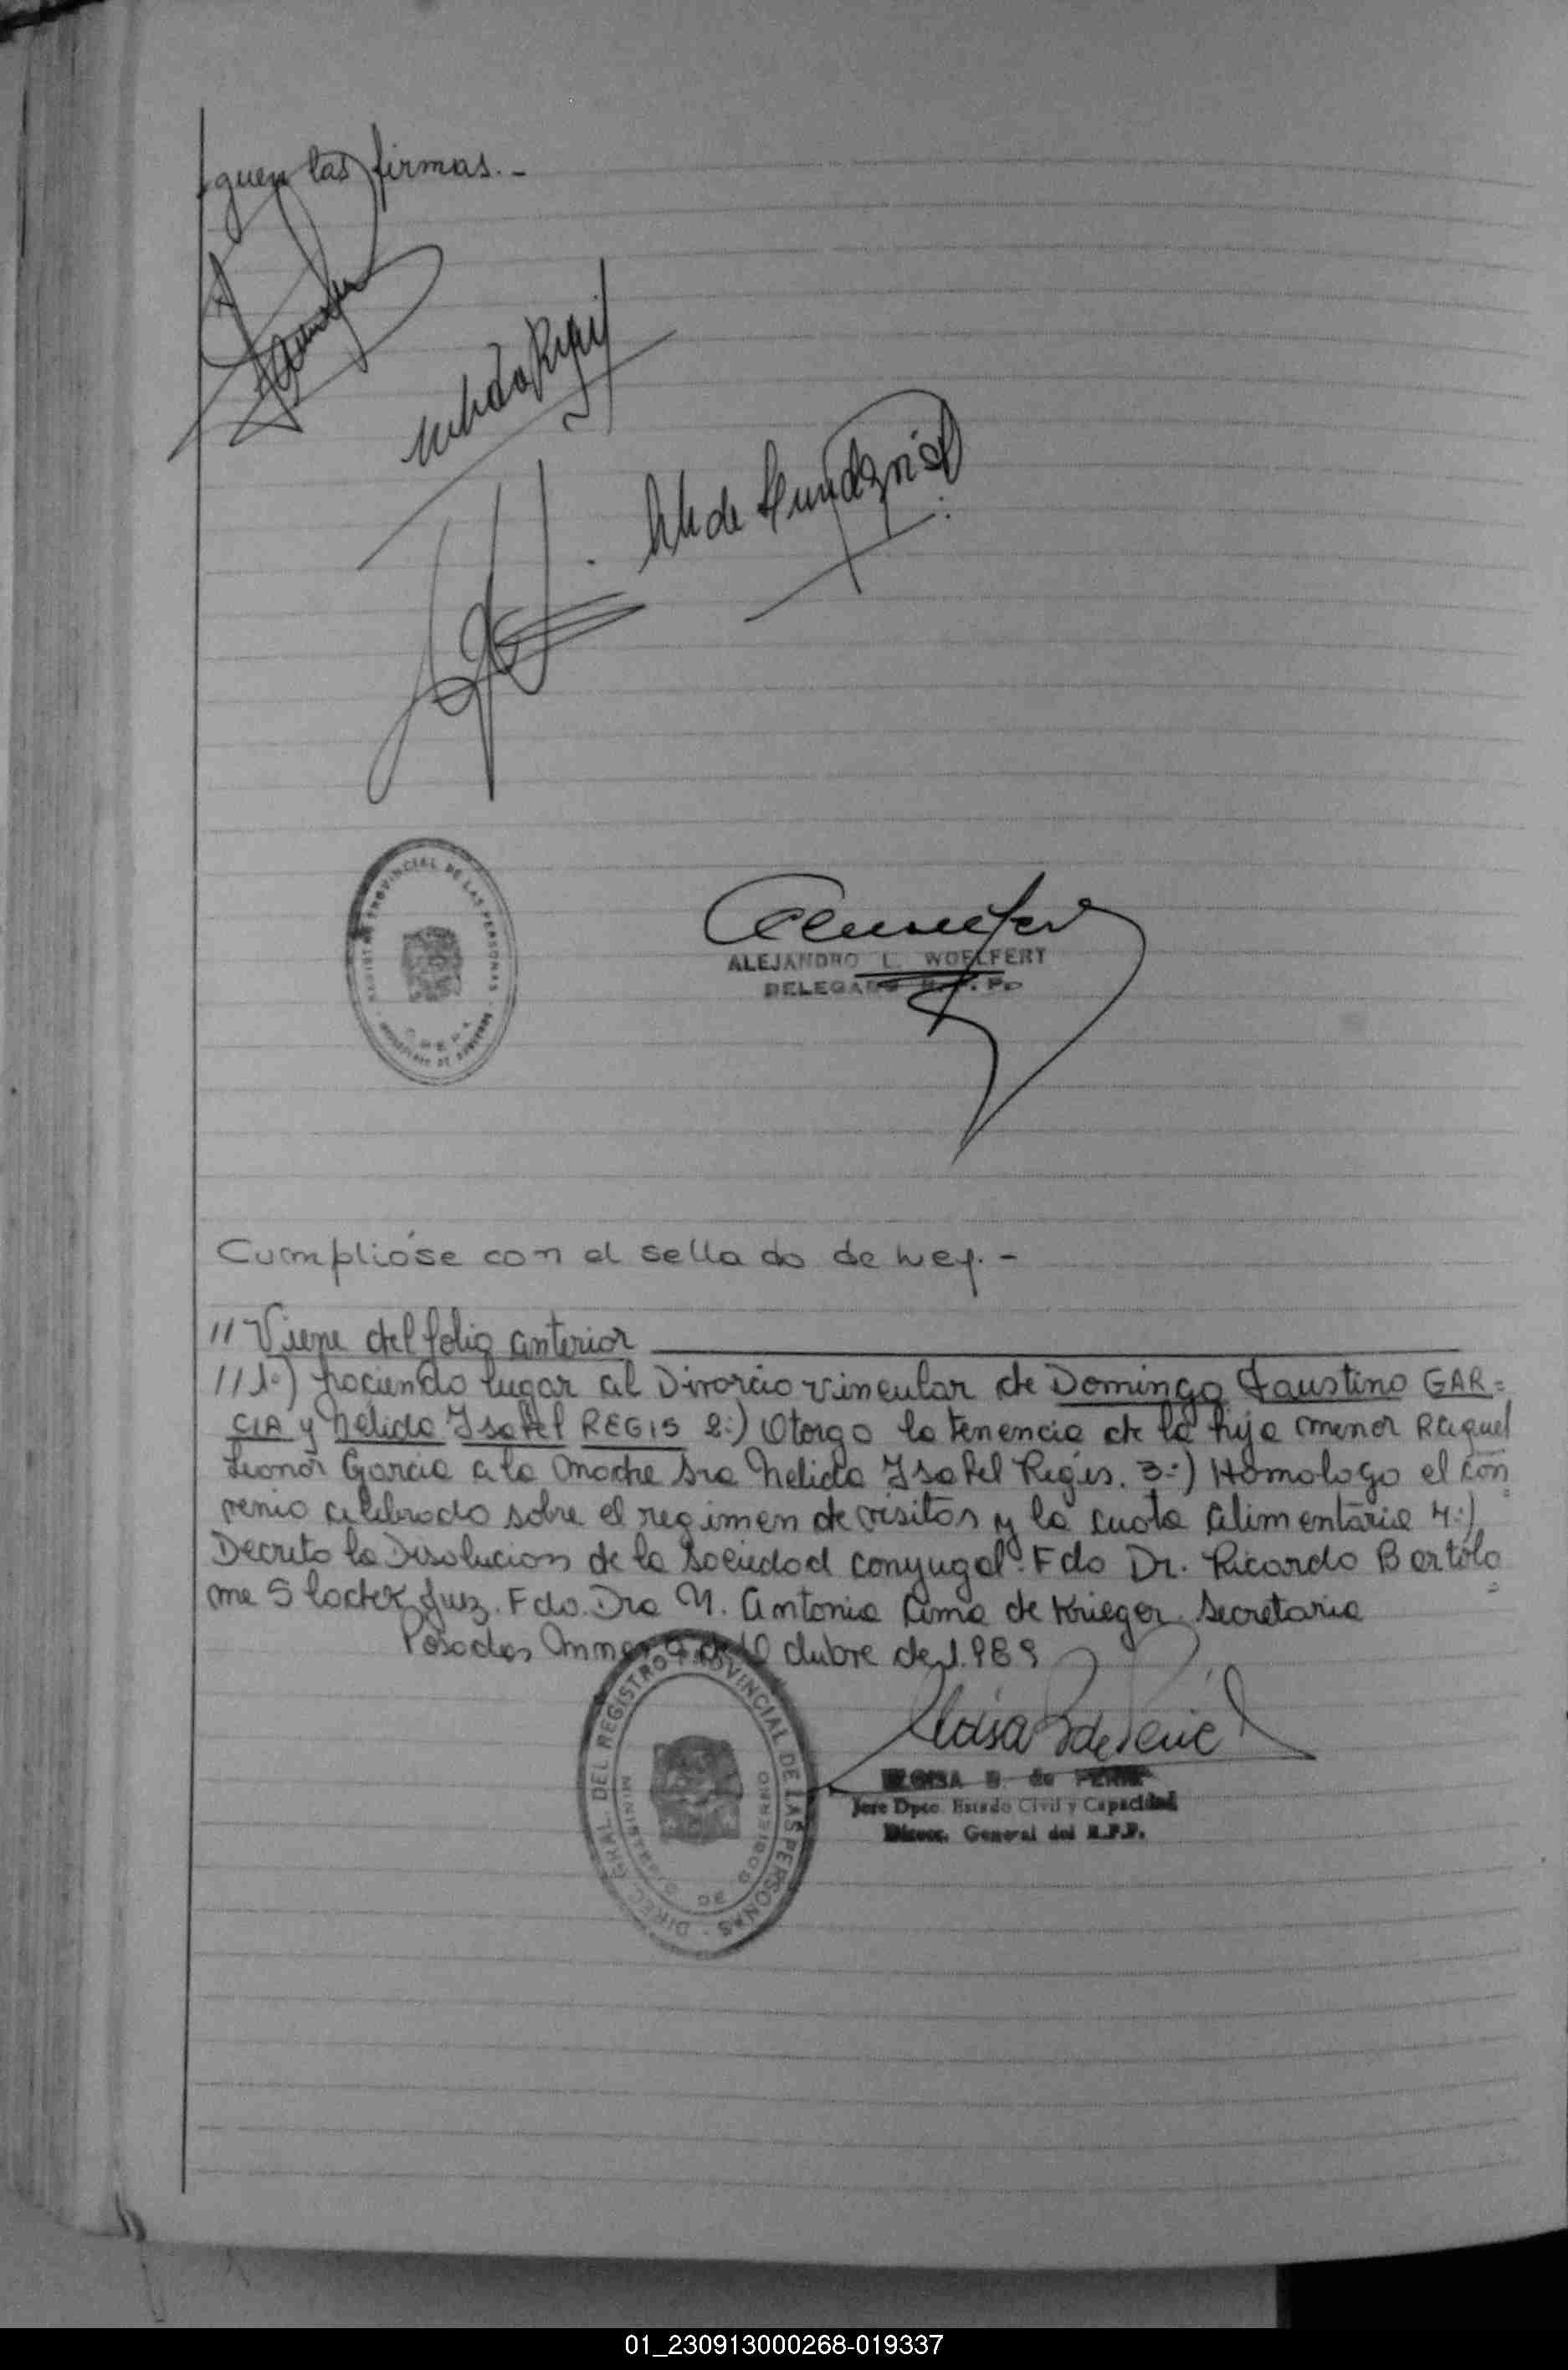 guen las firmas.-
ALEJANDRO L. WOELFERT
DELEGADO R.P.P.
REGISTRO PROVINCIAL DE LAS PERSONAS
Cumplióse con el sellado de Ley.-
// Viene del folio anterior
// 1°) haciendo lugar al Divorcio vincular de Domingo Faustino GAR=
CIA y Nélida Isabel REGIS 2:) Otorgo la tenencia de la hija menor Raquel
Leonor Garcia a la madre Sra Nelida Isabel Regis. 3:) Homologo el con
venio celebrado sobre el regimen de visitas y la cuota alimentaria 4:)
Decreto la Disolucion de la sociedad conyugal. Fdo Dr. Ricardo Bartolo
=
me Slocker Juez. Fdo. Dra M. Antonia Lima de Krieger Secretaria
Posadas Mnes 9 de Octubre de 1.989
DIREC. GRAL. DEL REGISTRO PROVINCIAL DE LAS PERSONAS
MINISTERIO DE GOBIERNO
ELOISA B. de
Jefe Dpto. Estado Civil y Capacidad
Direcc. General del R.P.P.
01_230913000268-019337